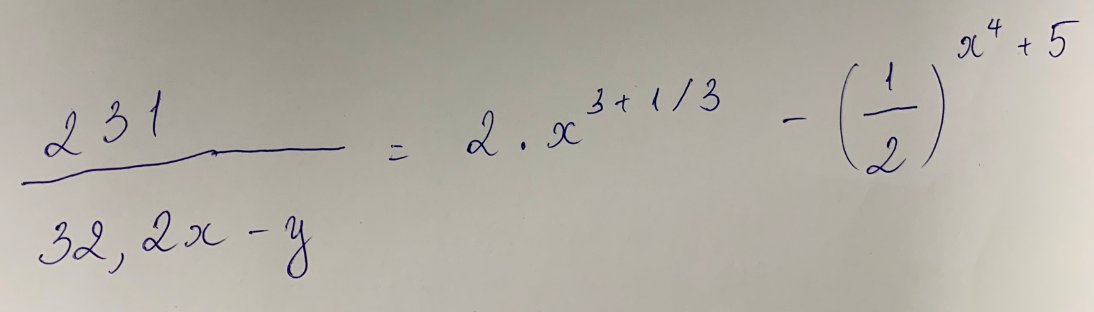 \frac{231}{32,2x - y} = 2 \cdot x^{3+1/3} - \left(\frac{1}{2}\right)^{x^4+5}